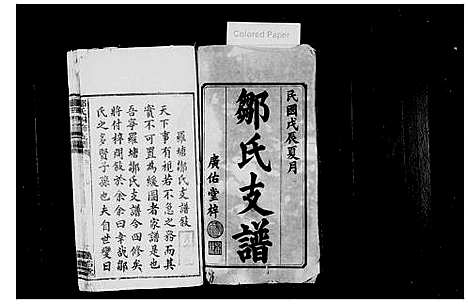 Colored Paper
民國戊辰夏月
鄒氏支譜
廣佑堂梓
羅塘鄒氏支譜敘
天下事有視若不急之務而其
實不可置為緩圖者家譜是也
吾寧羅塘鄒氏支譜今四修矣
將付梓問敘於余余曰幸哉鄒
氏之多賢子孫也夫自世變日